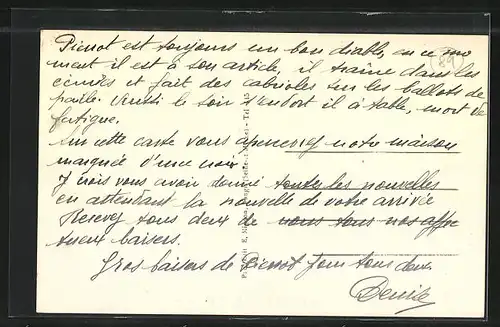 Pierrot est toujours un bon diable, en ce mo
ment il est à son article, il traîne dans les
écuries et fait des cabrioles sur les ballots de
paille. Aussi le soir s'endort il à table, mort de
fatigue.
Sur cette carte vous apercevez notre maison
marquée d'une croix
Je crois vous avoir donné toutes les nouvelles
en attendant la nouvelle de votre arrivée
Recevez tous deux de nous tous nos affec
tueux baisers.
Gros baisers de Pierrot pour tous deux.
Denise
(89)